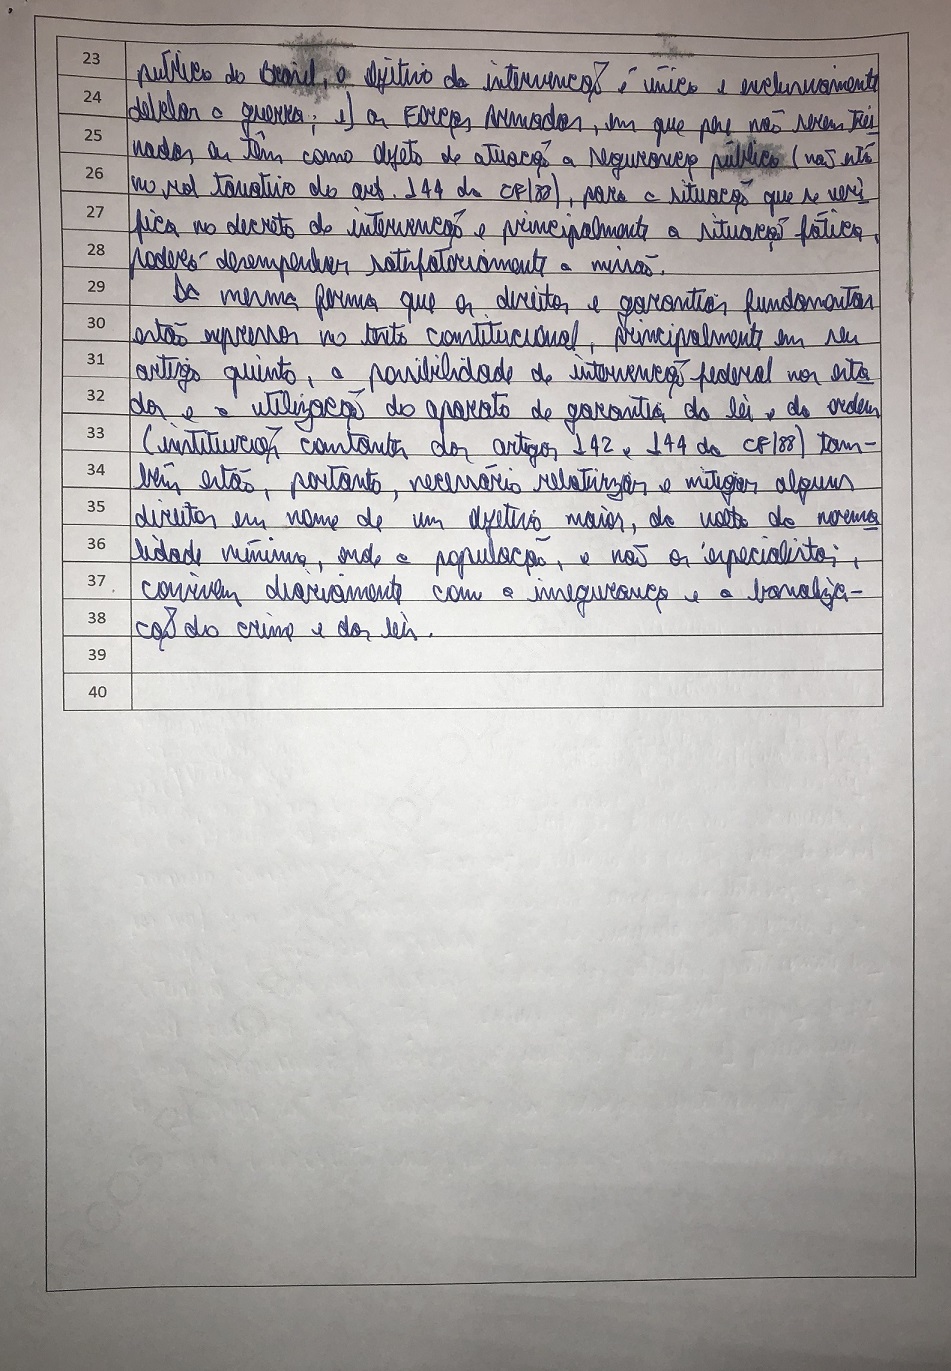 23 público do Brasil, o objetivo da intervenção é único e exclusivamente
24 debelar a guerra; e) as Forças Armadas, em que pese não serem trei
25 nadas ou têm como objeto de atuação a segurança pública (não está
26 no rol taxativo do art. 144 da CF/88), para a situação que se veri
27 fica no decreto de intervenção e principalmente a situação fática,
28 poderão desempenhar satisfatoriamente a missão.
29 Da mesma forma que os direitos e garantias fundamentais
30 estão expressos no texto constitucional, principalmente em seu
31 artigo quinto, a possibilidade de intervenção federal nos esta
32 dos e a utilização do aparato de garantia da lei e da ordem
33 (instituição constante dos artigos 142 e 144 da CF/88) tam-
34 bém estão, portanto, necessário relativizar e mitigar alguns
35 direitos em nome de um objetivo maior, da volta da norma
36 lidade mínima, onde a população, e não os 'especialistas',
37 convivem diariamente com a insegurança e a banaliza-
38 ção do crime e das leis.
39
40